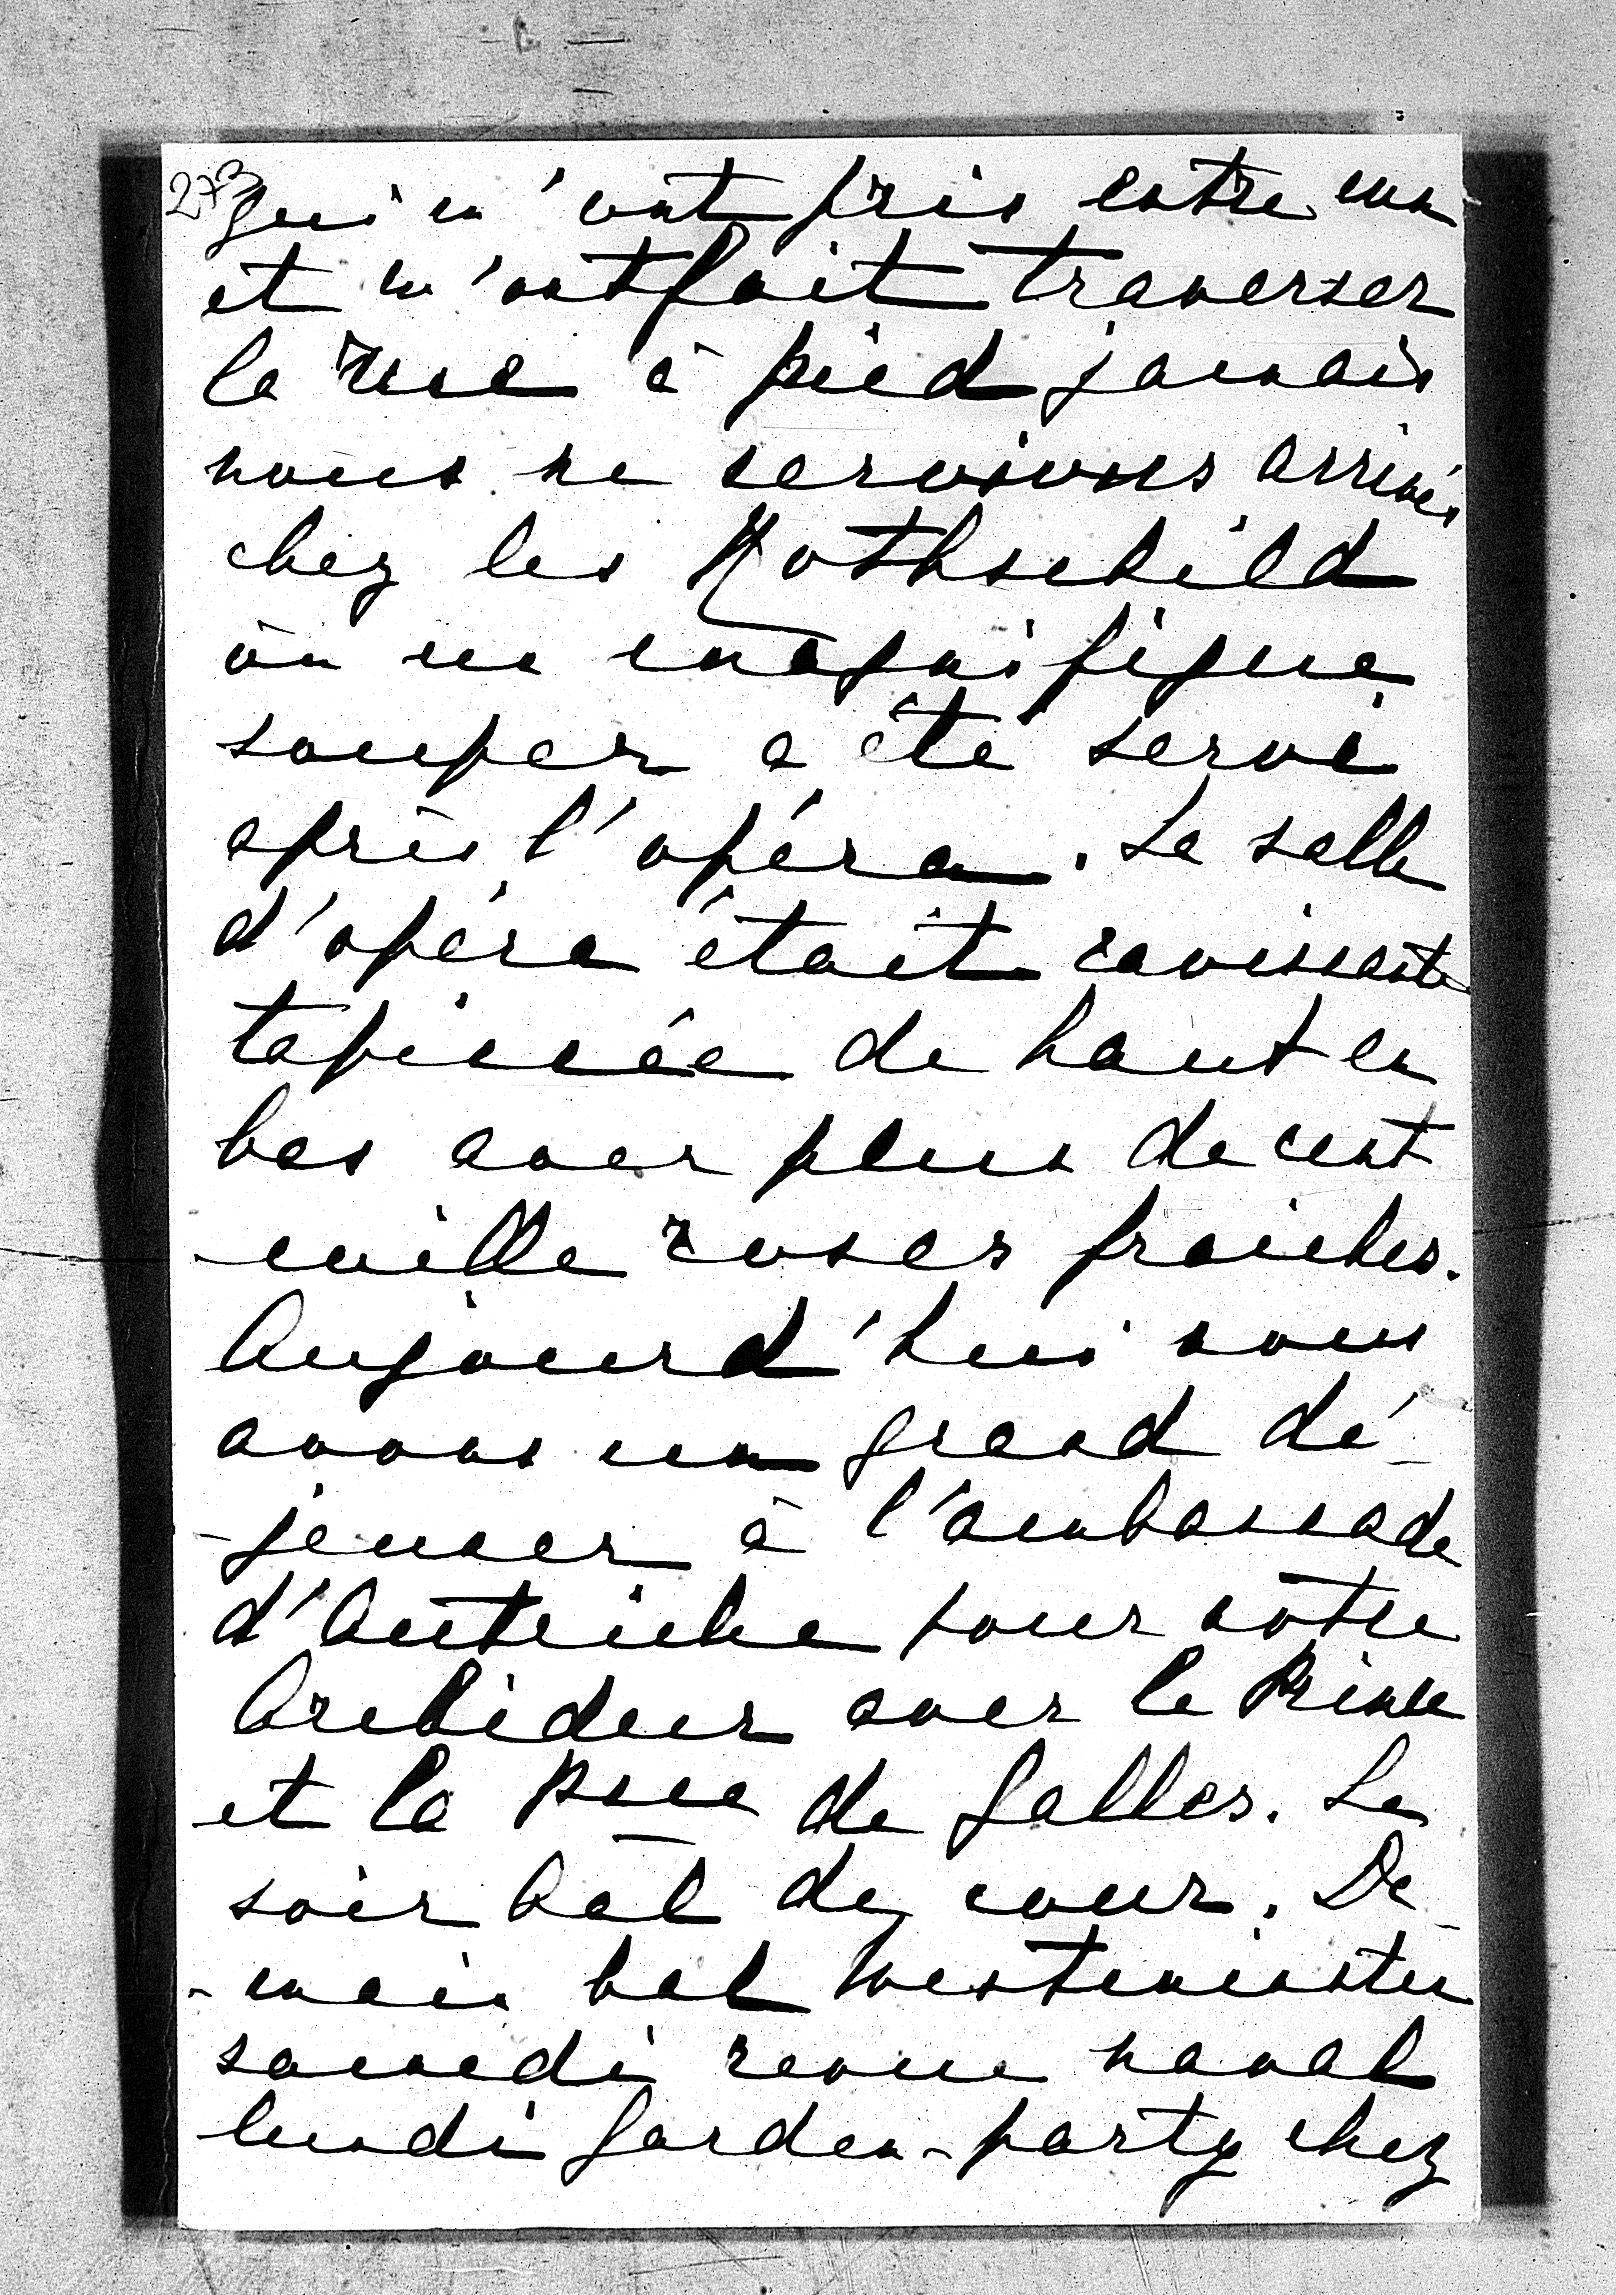 273
qui m'ont pris entre eux
et m'ont fait traverser
la rue à pied jamais
nous ne serions arrivés
chez les Rothschild
où un magnifique
souper a été servi
après l'opéra. La salle
d'opéra était ravissante
tapissée de haut en
bas avec plus de cent
mille roses fraiches.
Aujourd'hui nous
avons un grand dé-
-jeuner à l'ambassade
d'Autriche pour notre
Archiduc avec le Prince
et la Psse de Galles. Le
soir bal de cour. De-
-main bal Westminster
samedi revue naval
lundi garden-party chez